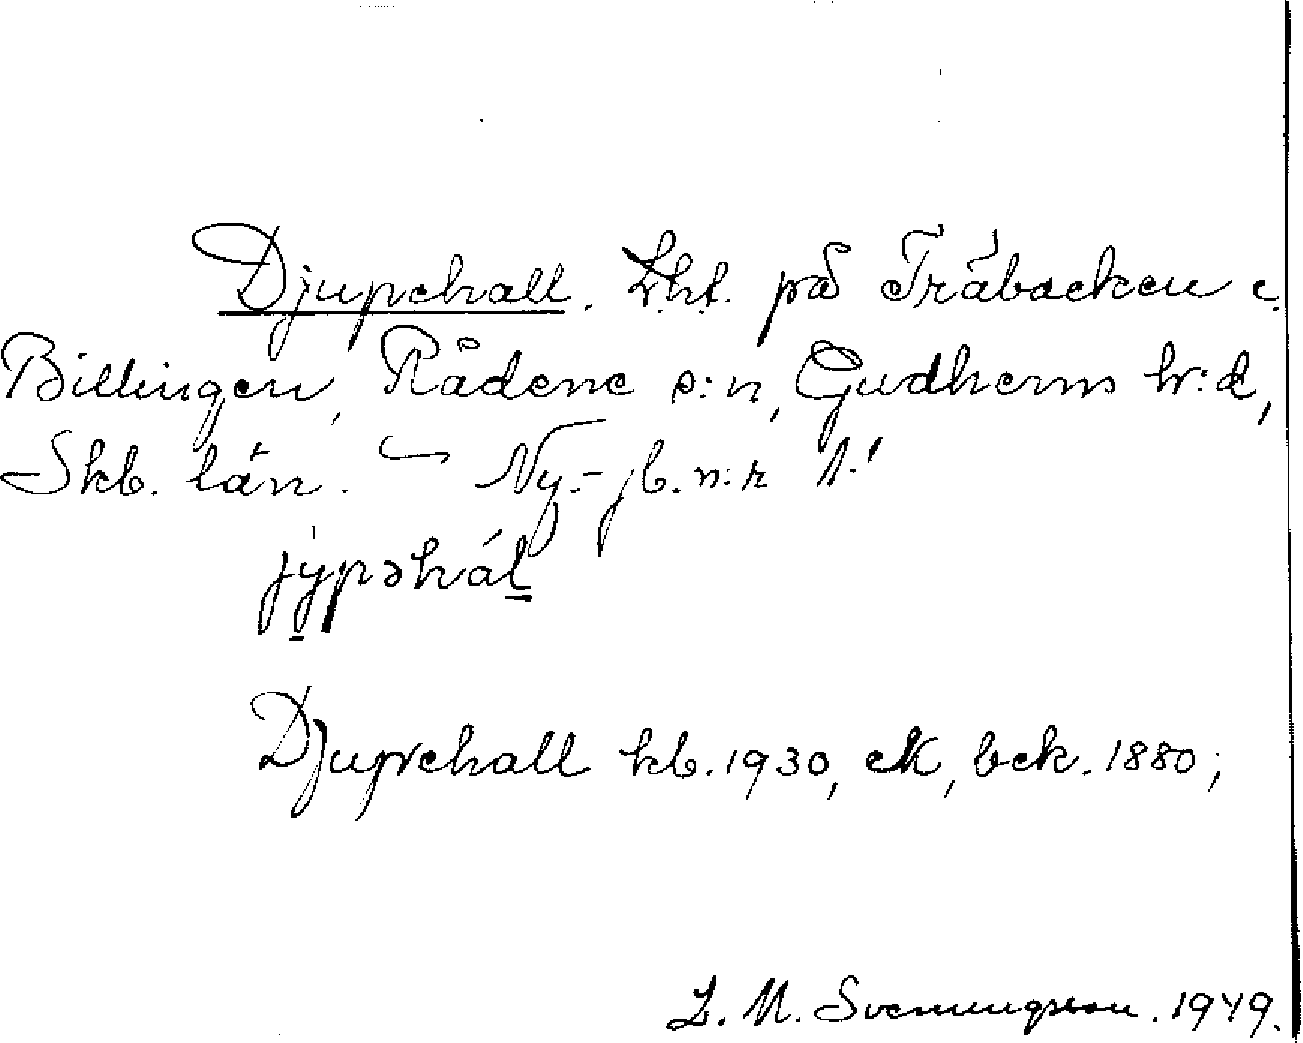 Djupehall. Lht. på Träbacken e.
Billingen, Rådene s:n, Gudhems hr:d,
Skb. län. — Ny. - jb. n:r 1:1
jy̱pəhál̲
Djupehall kb. 1930, eK, bek. 1880;
L. M. Svenungsson. 1949.